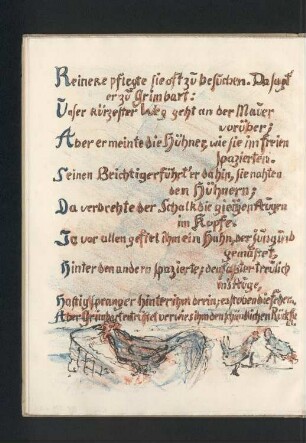 Reineke pflegte sie oft zu besuchen. Da sagt
er zu Grimbart:
Unser kürzester Weg geht an der Mauer
vorüber;
Aber er meinte die Hühner, wie sie im freien
spazierten.
Seinen Beichtiger führt'er dahin, sie nahten
den Hühnern;
Da verdrehte der Schalk die gierigen Augen
im Kopfe.
Ja vor allen gefiel ihm ein Hahn, der jung und
gemästet,
Hinter den andern spazierte; den fasst er treulich
ins Auge,
Hastig sprang er hinter ihm drein; es stoben die Federn.
Aber Grimbart entrüstet verwies ihm den schändlichen Rückfall